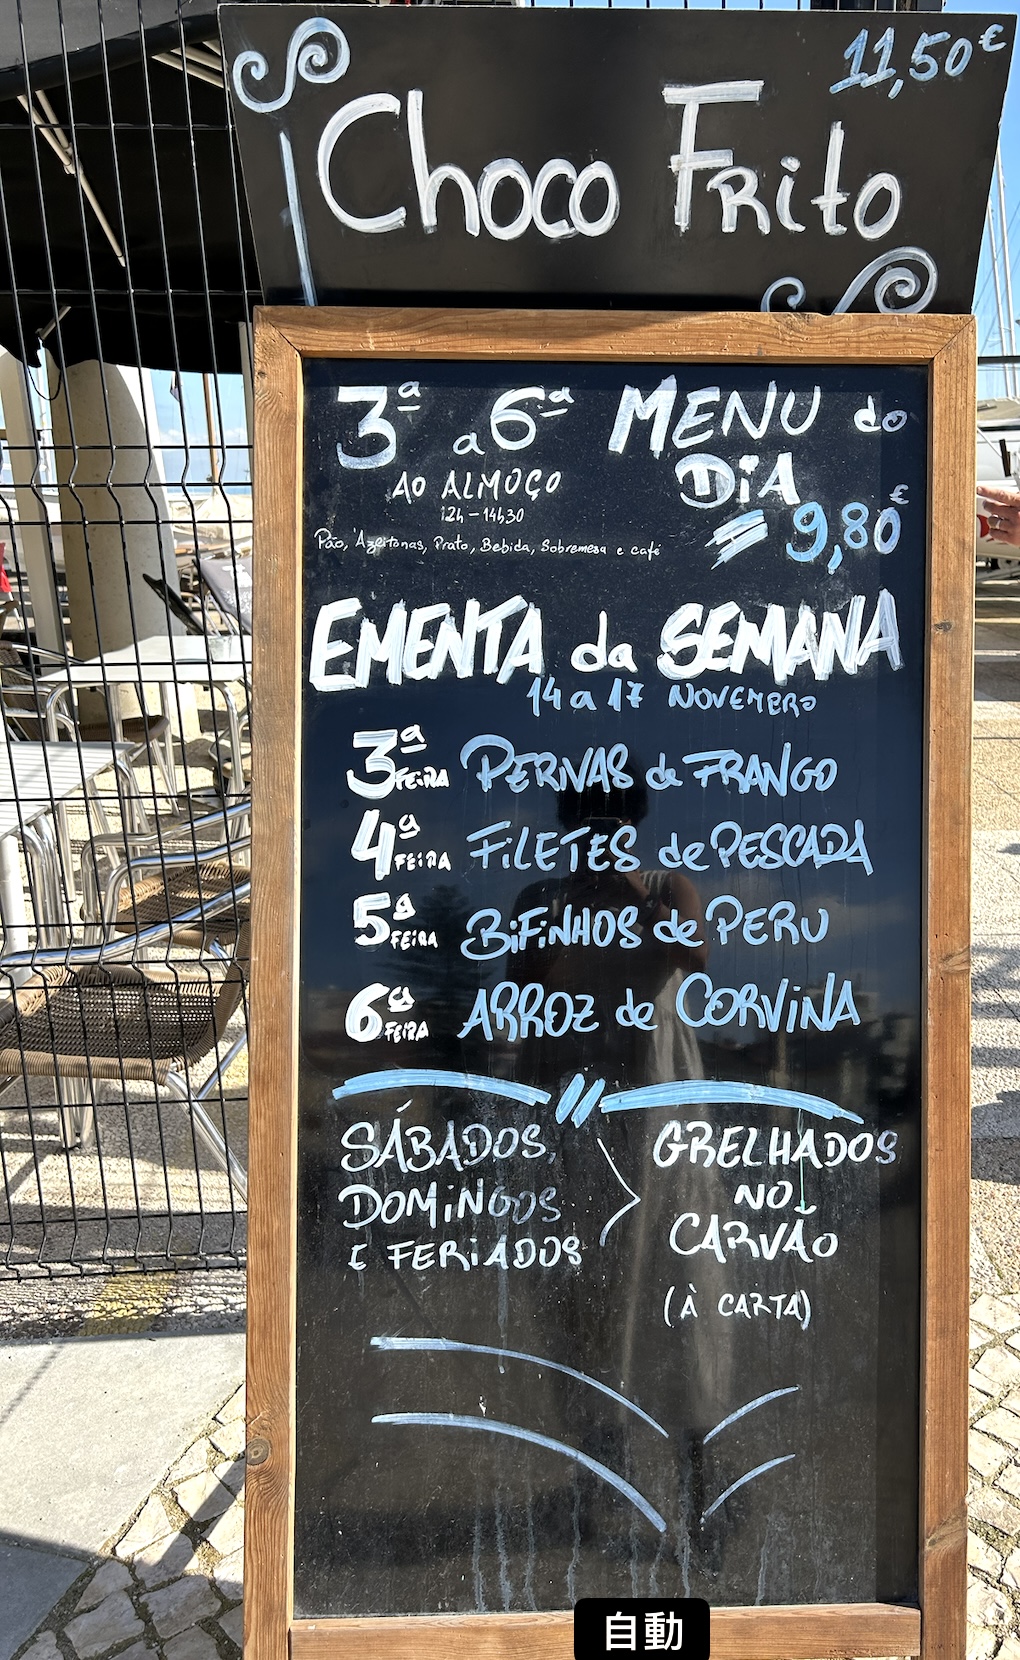 11,50€
Choco Frito
3ª a 6ª
AO ALMOÇO
12h-14h30
Pão, Azeitonas, Prato, Bebida, Sobremesa e café
MENU do
DiA
9,80€
EMENTA da SEMANA
14 a 17 NOVEMBRO
3ª FEiRA PERNAS de FRANGO
4ª FEiRA FiLETES de PESCADA
5ª FEiRA BiFiNHOS de PERU
6ª FEiRA ARROZ de CORViNA
SÁBADOS,
DOMiNGOS
E FERiADOS
GRELHADOS
NO
CARVÃO
(À CARTA)
自動